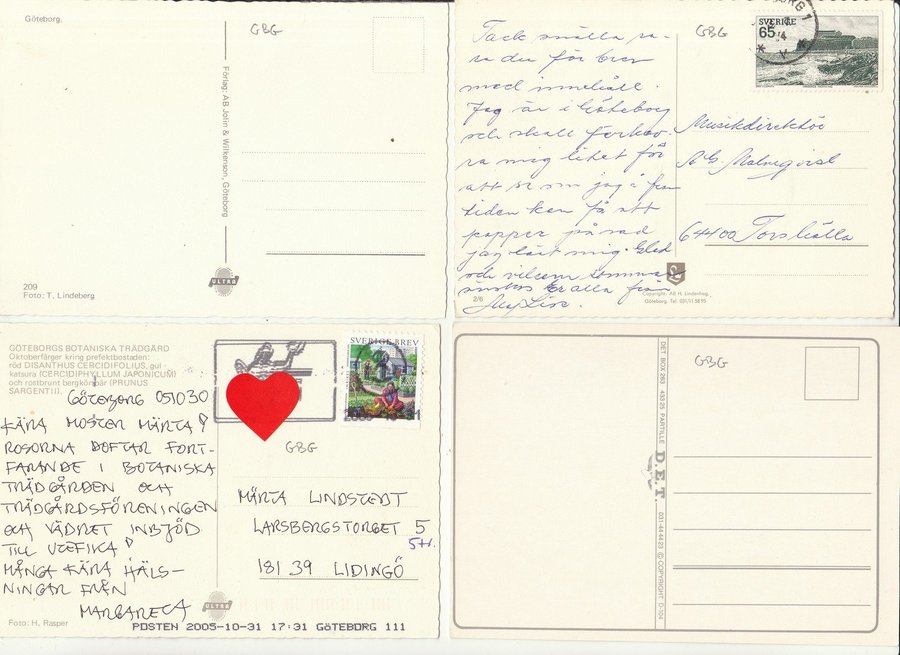 Göteborg.
GBG
Förlag: AB Jolin & Wilkenson, Göteborg
209
Foto: T. Lindeberg
ULTRA
Tack snälla ra-
ra du för brev
med innehåll.
Jag är i Göteborg
och skall förkov-
ra mig litet för
att se om jag i fram-
tiden kan få ett
papper på vad
jag lärt mig. Glad
och vilsam sommar
önskas Er alla från
Maj Lise.
2/6
GBG
SVERIGE
65
Musikdirektör
A G Malmqvist
64400 Torshälla
Copyright: AB H. Lindenhag,
Göteborg. Tel. 031/11 58 95
GÖTEBORGS BOTANISKA TRÄDGÅRD
Oktoberfärger kring prefektbostaden:
röd DISANTHUS CERCIDIFOLIUS, gul
katsura (CERCIDIPHYLLUM JAPONICUM)
och rostbrunt bergkörsbär (PRUNUS
SARGENTII).
GÖTEBORG 051030
KÄRA MOSTER MÄRTA!
ROSORNA DOFTAR FORT-
FARANDE I BOTANISKA
TRÄDGÅRDEN OCH
TRÄDGÅRDSFÖRENINGEN
OCH VÄDRET INBJÖD
TILL UTEFIKA!
MÅNGA KÄRA HÄLS-
NINGAR FRÅN
MARGARETA
Foto: H. Rasper
ULTRA
SVERIGE BREV
GBG
MÄRTA LINDSTEDT
LARSBERGSTORGET 5
5tr.
181 39 LIDINGÖ
POSTEN 2005-10-31 17:31 GÖTEBORG 111
GBG
DET BOX 263 433 25 PARTILLE
D.E.T.
031-44 44 23 © COPYRIGHT D-204